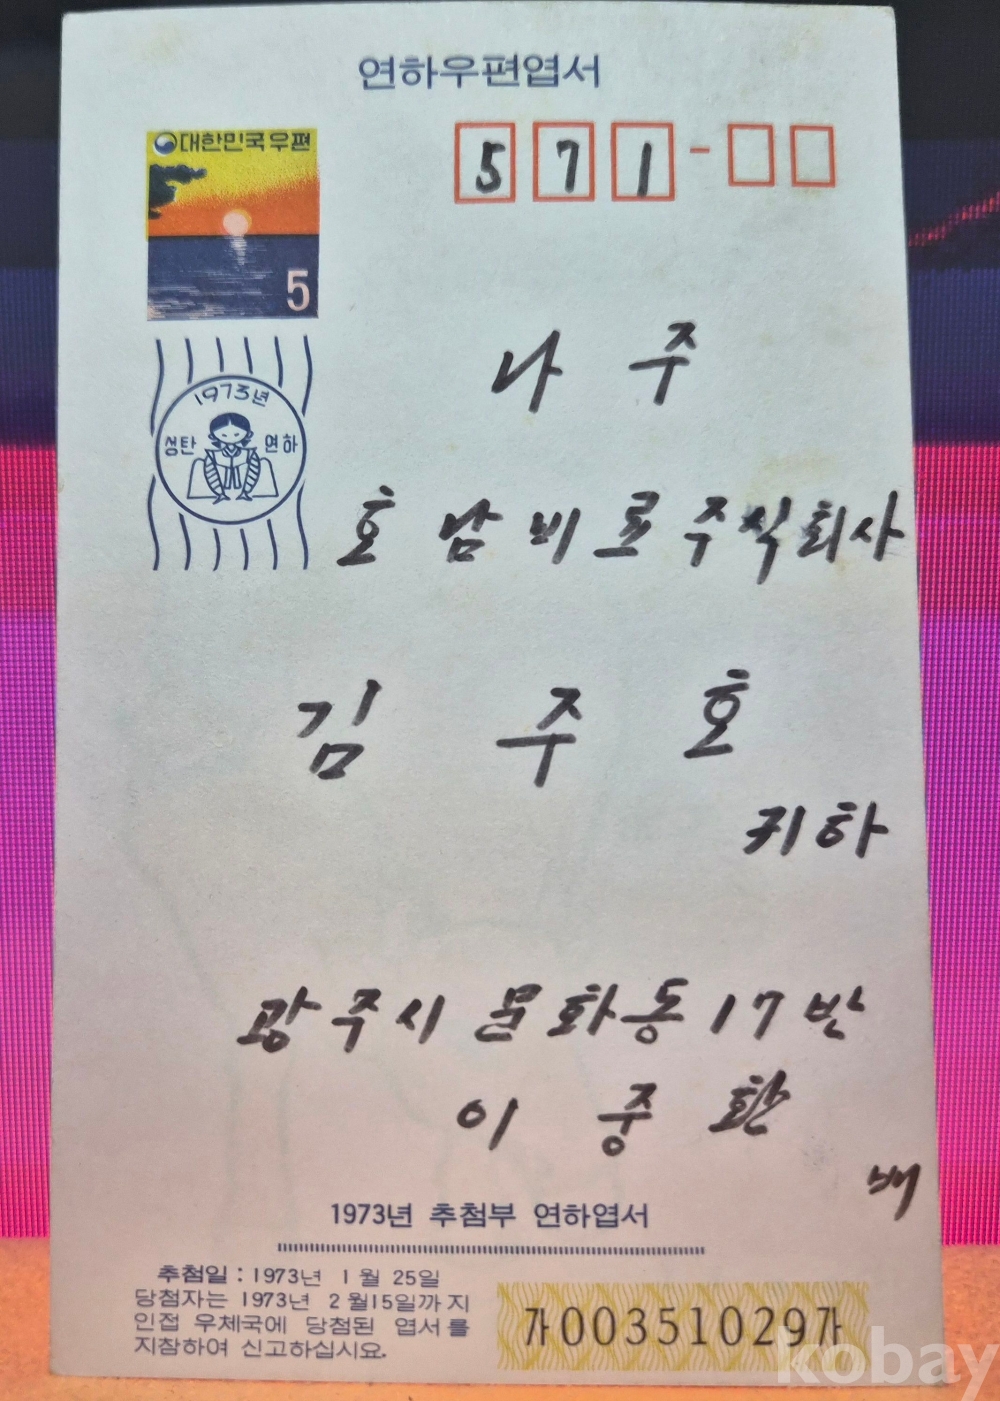 연하우편엽서
대한민국우편
5
571-
1973년
성탄 연하
나주
호남비료주식회사
김주호
귀하
광주시 문화동 17반
이중환
배
1973년 추첨부 연하엽서
추첨일 : 1973년 1월 25일
당첨자는 1973년 2월15일까지
인접 우체국에 당첨된 엽서를
지참하여 신고하십시요.
가003510298가
kobay